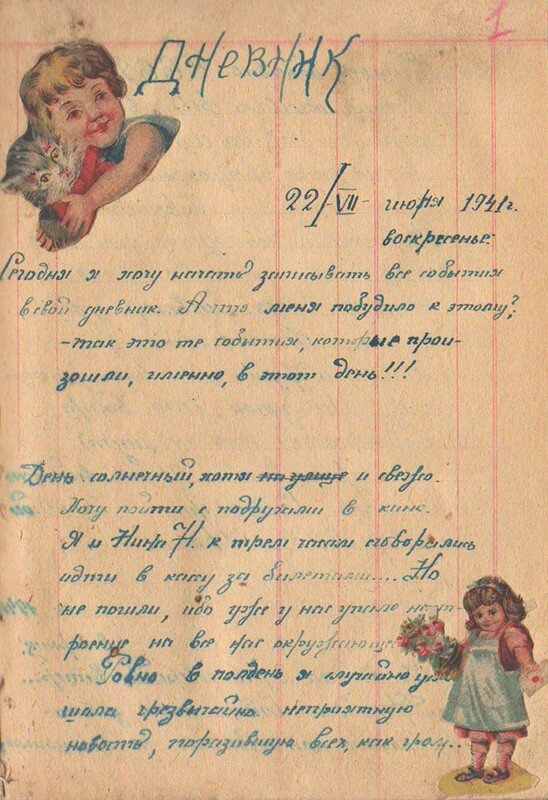 1
Дневник
22/VII- июня 1941г.
воскресенье.
Сегодня я хочу начать записывать все события
в свой дневник. А что меня побудило к этому?
-так это те события, которые прои-
зошли, именно, в этот день!!!
День солнечный, хотя на улице и свежо.
Хочу пойти с подругами в кино.
Я и Нина Н. к трем часам сговорились
идти в кассу за билетами... Но
не пошли, ибо уже у нас упало наст-
роение на все нас окружающее
Ровно в полдень я случайно ус
шала чрезвычайно неприятную
новость, поразившую всех, как гром..